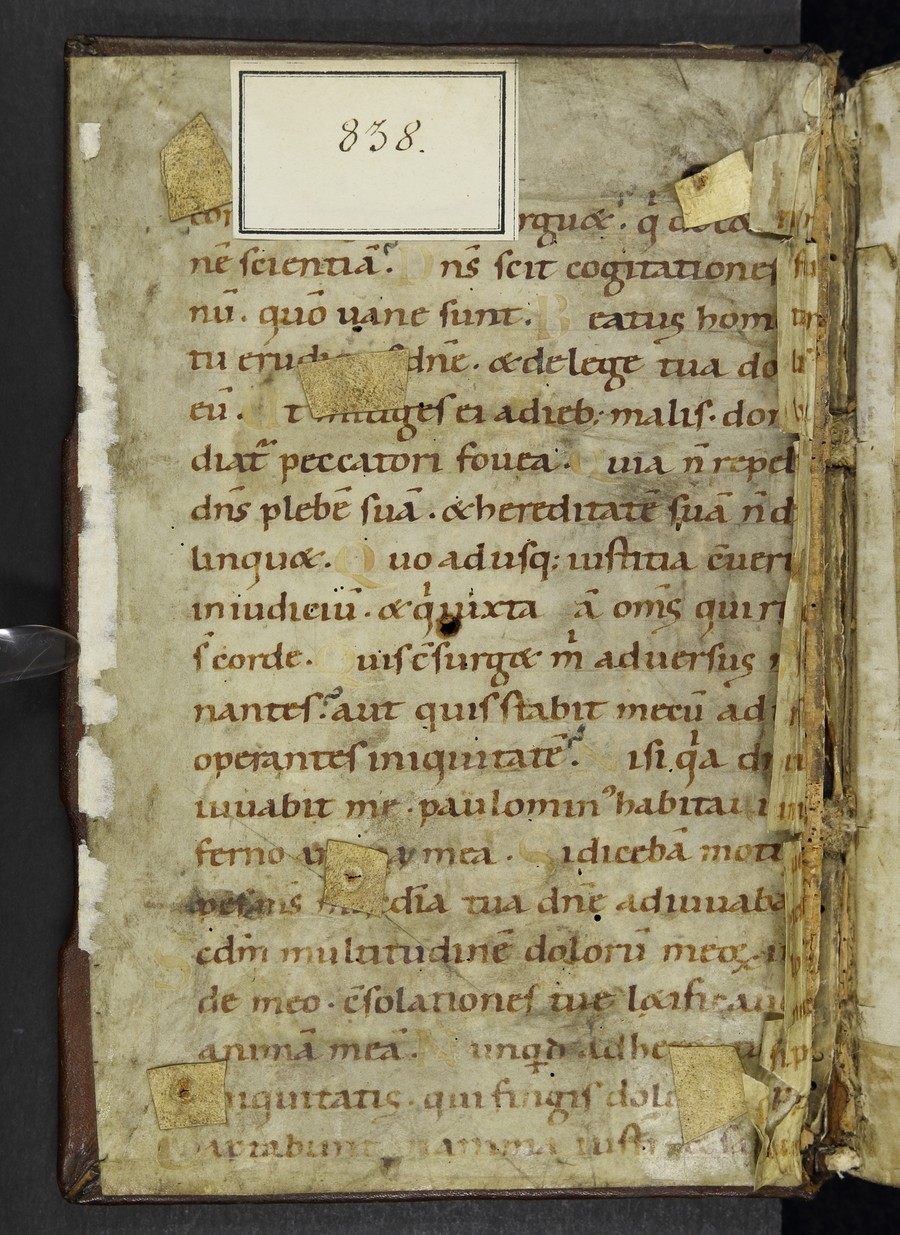 838.
rguæ. q̇ docæ
nē scientiā. Dns̄ scit cogitationes
nū. quō uane sunt. Beatus hom
tu dn̄e. & de lege tua do
eū. t mitiges ei a dieb; malis. don
diat̄ peccatori fouea. Quia n̄ repel
dn̄s plebē suā. & hereditatē suā n̄ d
linquæ. Quo adusq; iustitia c̄uert
in iudiciū. & q̇ iuxta ā om̄s qui r
s̄ corde. Quis c̄surgæ ṁ aduersus
nantes. aut quis stabit mecū ad
operantes iniquitatē. Nisi q̇a d
iuuabit me. paulomin' habita i
ferno mea. Si dicebā mot
pes tua dn̄e adiuuaba
Scdm̄ multitudinē dolorū meoꝝ
de meo. c̄solationes tue læificau
animā meā. Nunqd adhe
iniquitatis. qui fingis dol
aptabunt in anima iusti